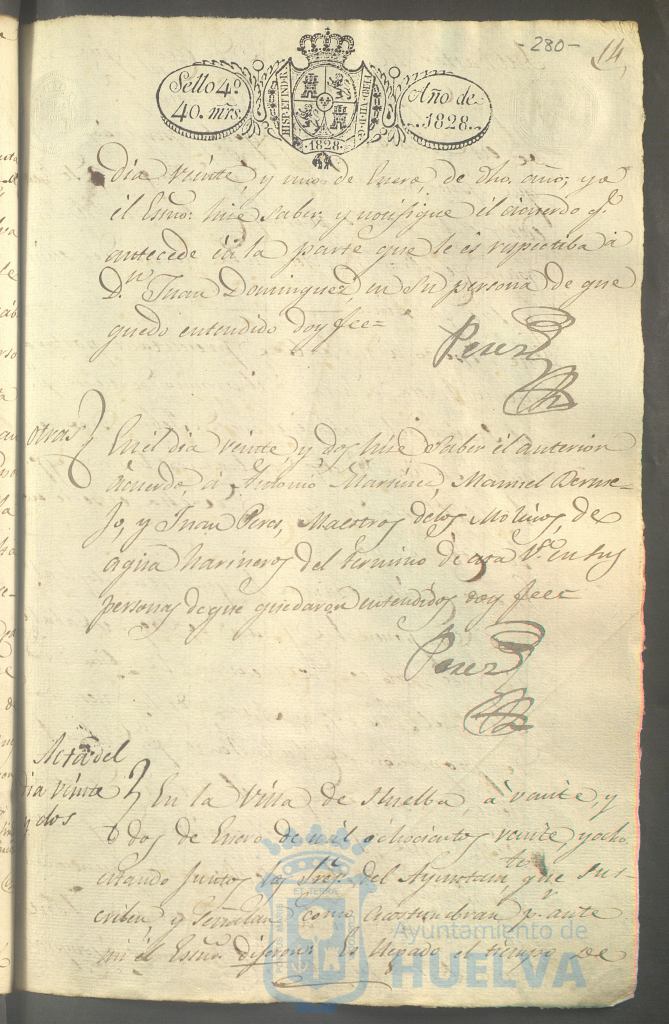 -280- 14,
Sello 4º
40. mrs.
HISP. ET IND. R.
1828.
Año de
1828.
Dia veinte, y uno de Enero, de dho. año; yo
el Esno. hise saber, y notifique el acuerdo q.
antecede en la parte que le es respectiba á
D.n Juan Dominguez, en su persona de que
quedo entendido doy fee=
Perez
Otras
En el dia veinte, y dos hise saber el anterior
acuerdo, á Antonio Martinez, Manuel Berme-
jo, y Juan Peres, Maestros delos Molinos, de
agua harineros del termino de esta V.ª en sus
personas de que quedaron entendidos doy fee=
Perez
Acta del
dia veinte
y dos
En la Villa de Huelba, á veinte, y
dos de Enero de mil ochocientos veinte, y ocho
estando juntos los Sres. del Ayuntam.to que sus-
criben, y señalan como acostumbran p.r ante
mi el Esno. dijeron: Es llegado el tiempo de
Ayuntamiento de
HUELVA